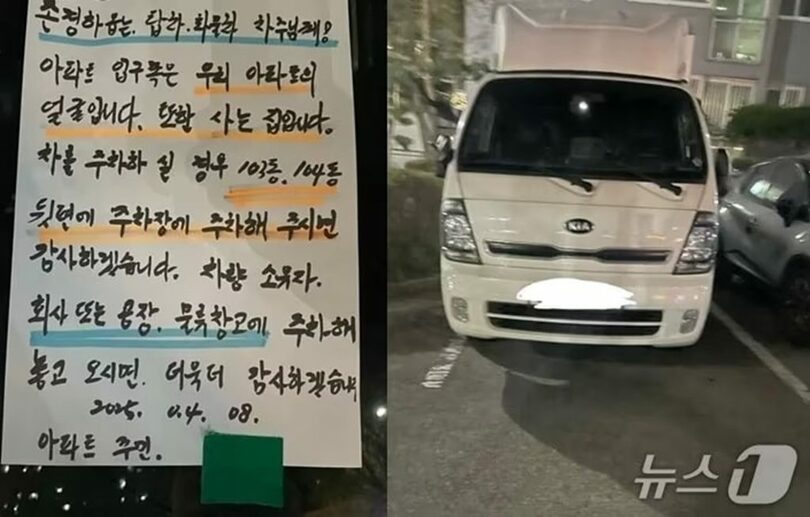 존경하옵는, 탑차.화물차 차주님께!
아파트 입구쪽은 우리 아파트의
얼굴입니다. 또한 사는 집입니다.
차를 주차하 실 경우 103동, 104동
뒷편에 주차장에 주차해 주시면
감사하겠습니다. 차량 소유자.
회사 또는 공장, 물류창고에 주차해
놓고 오시면. 더욱더 감사하겠습니다
2025. 0.4. 08.
아파트 주민.
KIA
뉴스1